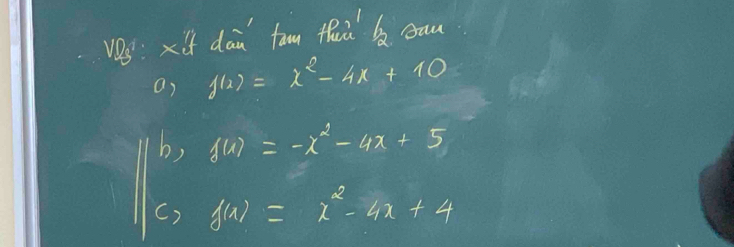 VD3: xét dấu tam thức b2 sau
a, f(x) = x² - 4x + 10
b, f(x) = -x² - 4x + 5
c, f(x) = x² - 4x + 4